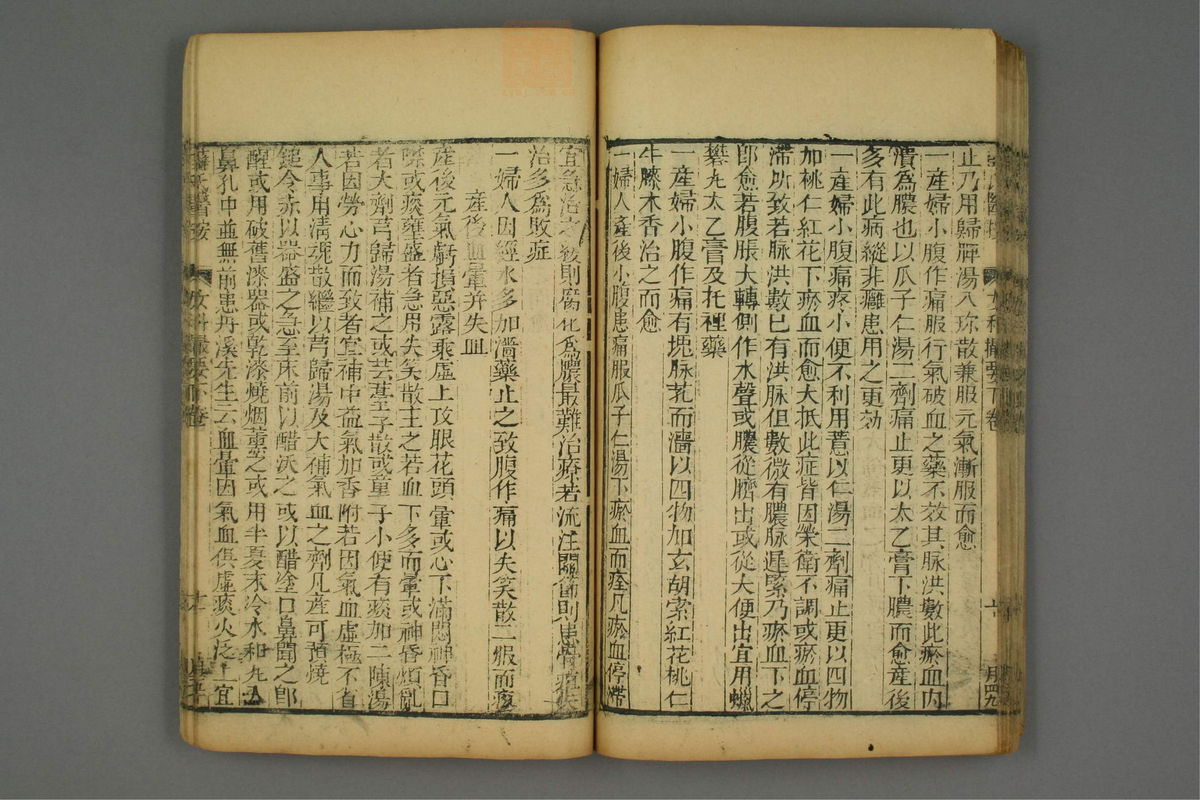 止乃用歸脾湯八珎散兼服元氣漸服而愈
一產婦小腹作痛服行氣破血之藥不效其脉洪數此瘀血内
潰爲膿也以瓜子仁湯二劑痛止更以太乙膏下膿而愈產後
多有此病縱非癰患用之更効
一產婦小腹痛疼小便不利用薏以仁湯二劑痛止更以四物
加桃仁紅花下瘀血而愈大抵此症皆因榮衛不調或瘀血停
滯所致若脉洪數已有洪脉但數微有膿脉遲緊乃瘀血下之
卽愈若腹脹大轉側作水聲或膿從臍出或從大便出宜用蠟
礬丸太乙膏及托裡藥
一產婦小腹作痛有塊脉芤而濇以四物加玄胡索紅花桃仁
牛膝木香治之而愈
一婦人產後小腹患痛服瓜子仁湯下瘀血而痊凡瘀血停滯
宜急治之緩則腐化爲膿最難治療若流注關節則患骨疽
治多爲敗症
一婦人因經水多加濇藥止之致腹作痛以失笑散二服而瘳
產後血暈并失血
產後元氣虧損惡露乘虛上攻眼花頭暈或心下滿悶神昏口
噤或痰壅盛者急用失笑散主之若血下多而暈或神昏煩亂
者大劑芎歸湯補之或芸薹子散或童子小便有痰加二陳湯
若因勞心力而致者宜補中益氣加香附若因氣血虛極不省
人事用淸魂散繼以芎歸湯及大補氣血之劑凡產可預燒
鎚令赤以器盛之急至床前以醋沃之或以醋塗口鼻聞之卽
醒或用破舊漆器或乾漆燒烟薰之或用半夏末冷水和丸入
鼻孔中並無前患丹溪先生云血暈因氣血俱虛痰火泛上宜
女科撮要下卷